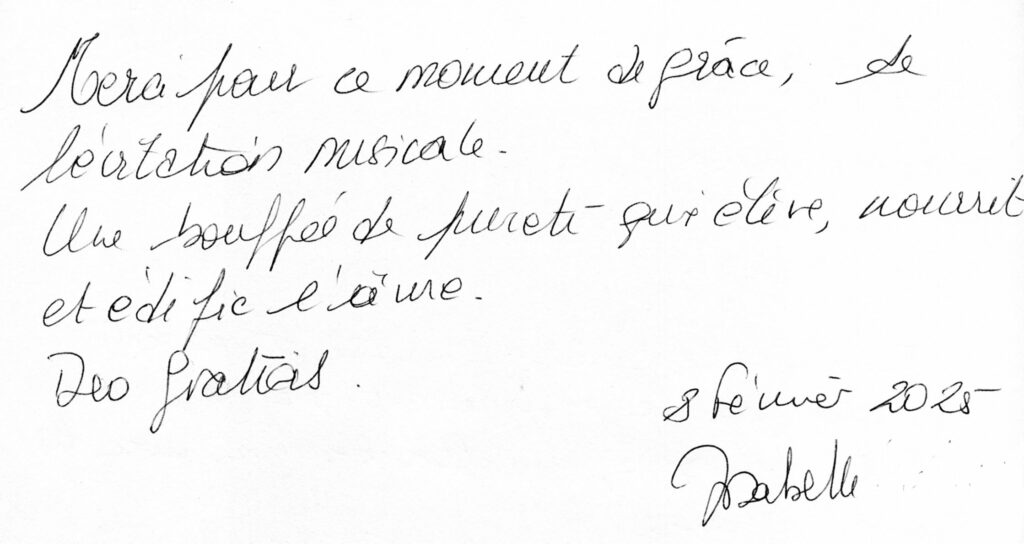 Merci pour ce moment de grâce, de
lévitation musicale.
Une bouffée de pureté qui élève, nourrit
et édifie l'âme.
Deo Gratias.
8 février 2025
Isabelle